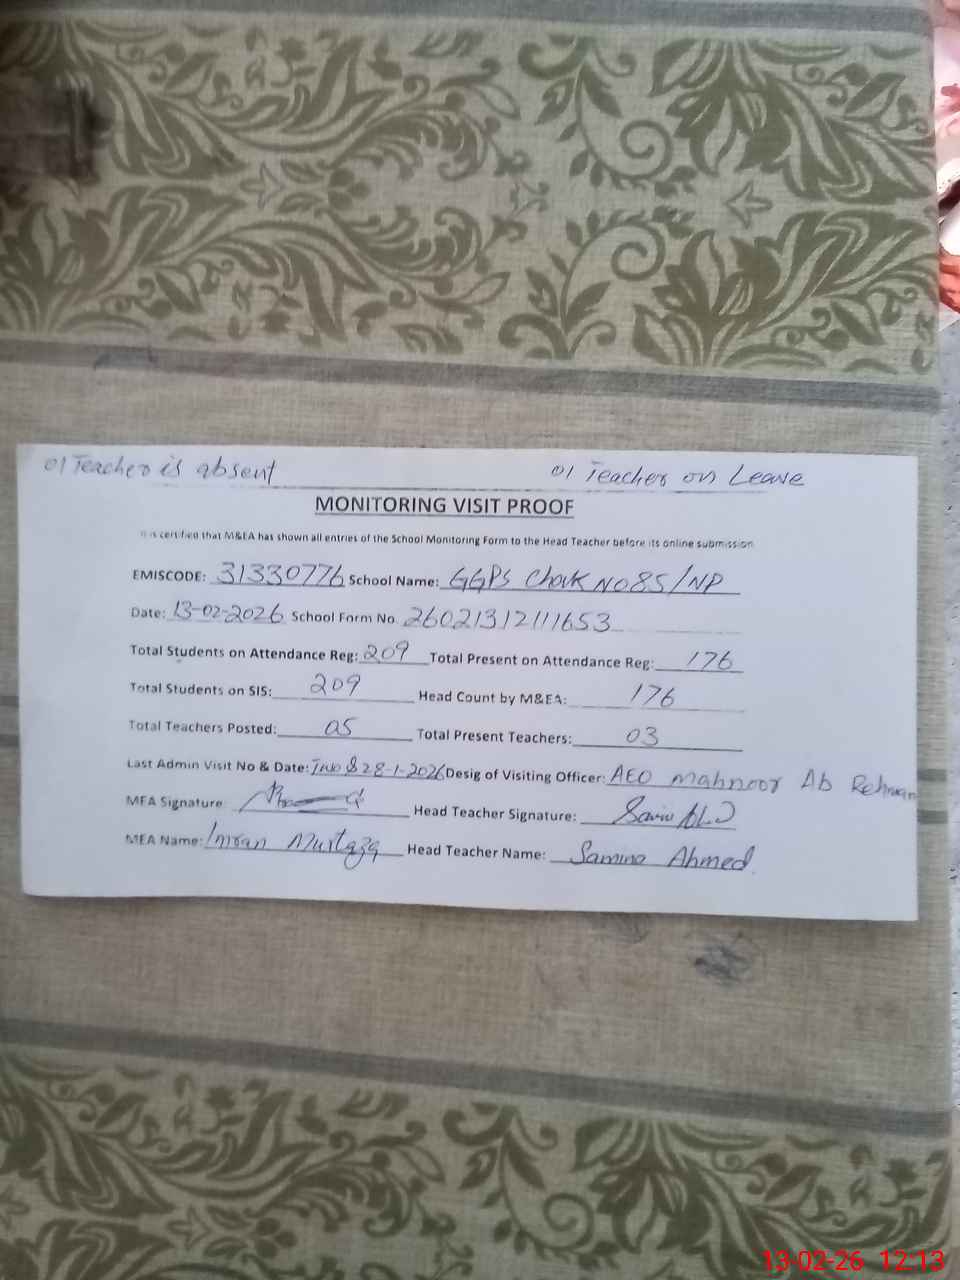 01 Teacher is absent 01 Teacher on Leave
MONITORING VISIT PROOF
It is certified that M&EA has shown all entries of the School Monitoring Form to the Head Teacher before its online submission
EMISCODE: 31330776 School Name: GGPS Chak No 85/NP
Date: 13-02-2026 School Form No. 26021312111653
Total Students on Attendance Reg: 209 Total Present on Attendance Reg: 176
Total Students on SIS: 209 Head Count by M&EA: 176
Total Teachers Posted: 05 Total Present Teachers: 03
Last Admin Visit No & Date: Two & 28-1-2026 Desig of Visiting Officer: AEO Mahnoor Ab Rehman
MEA Signature: Head Teacher Signature:
MEA Name: Imran Murtaza Head Teacher Name: Samina Ahmed
13-02-26 12:13